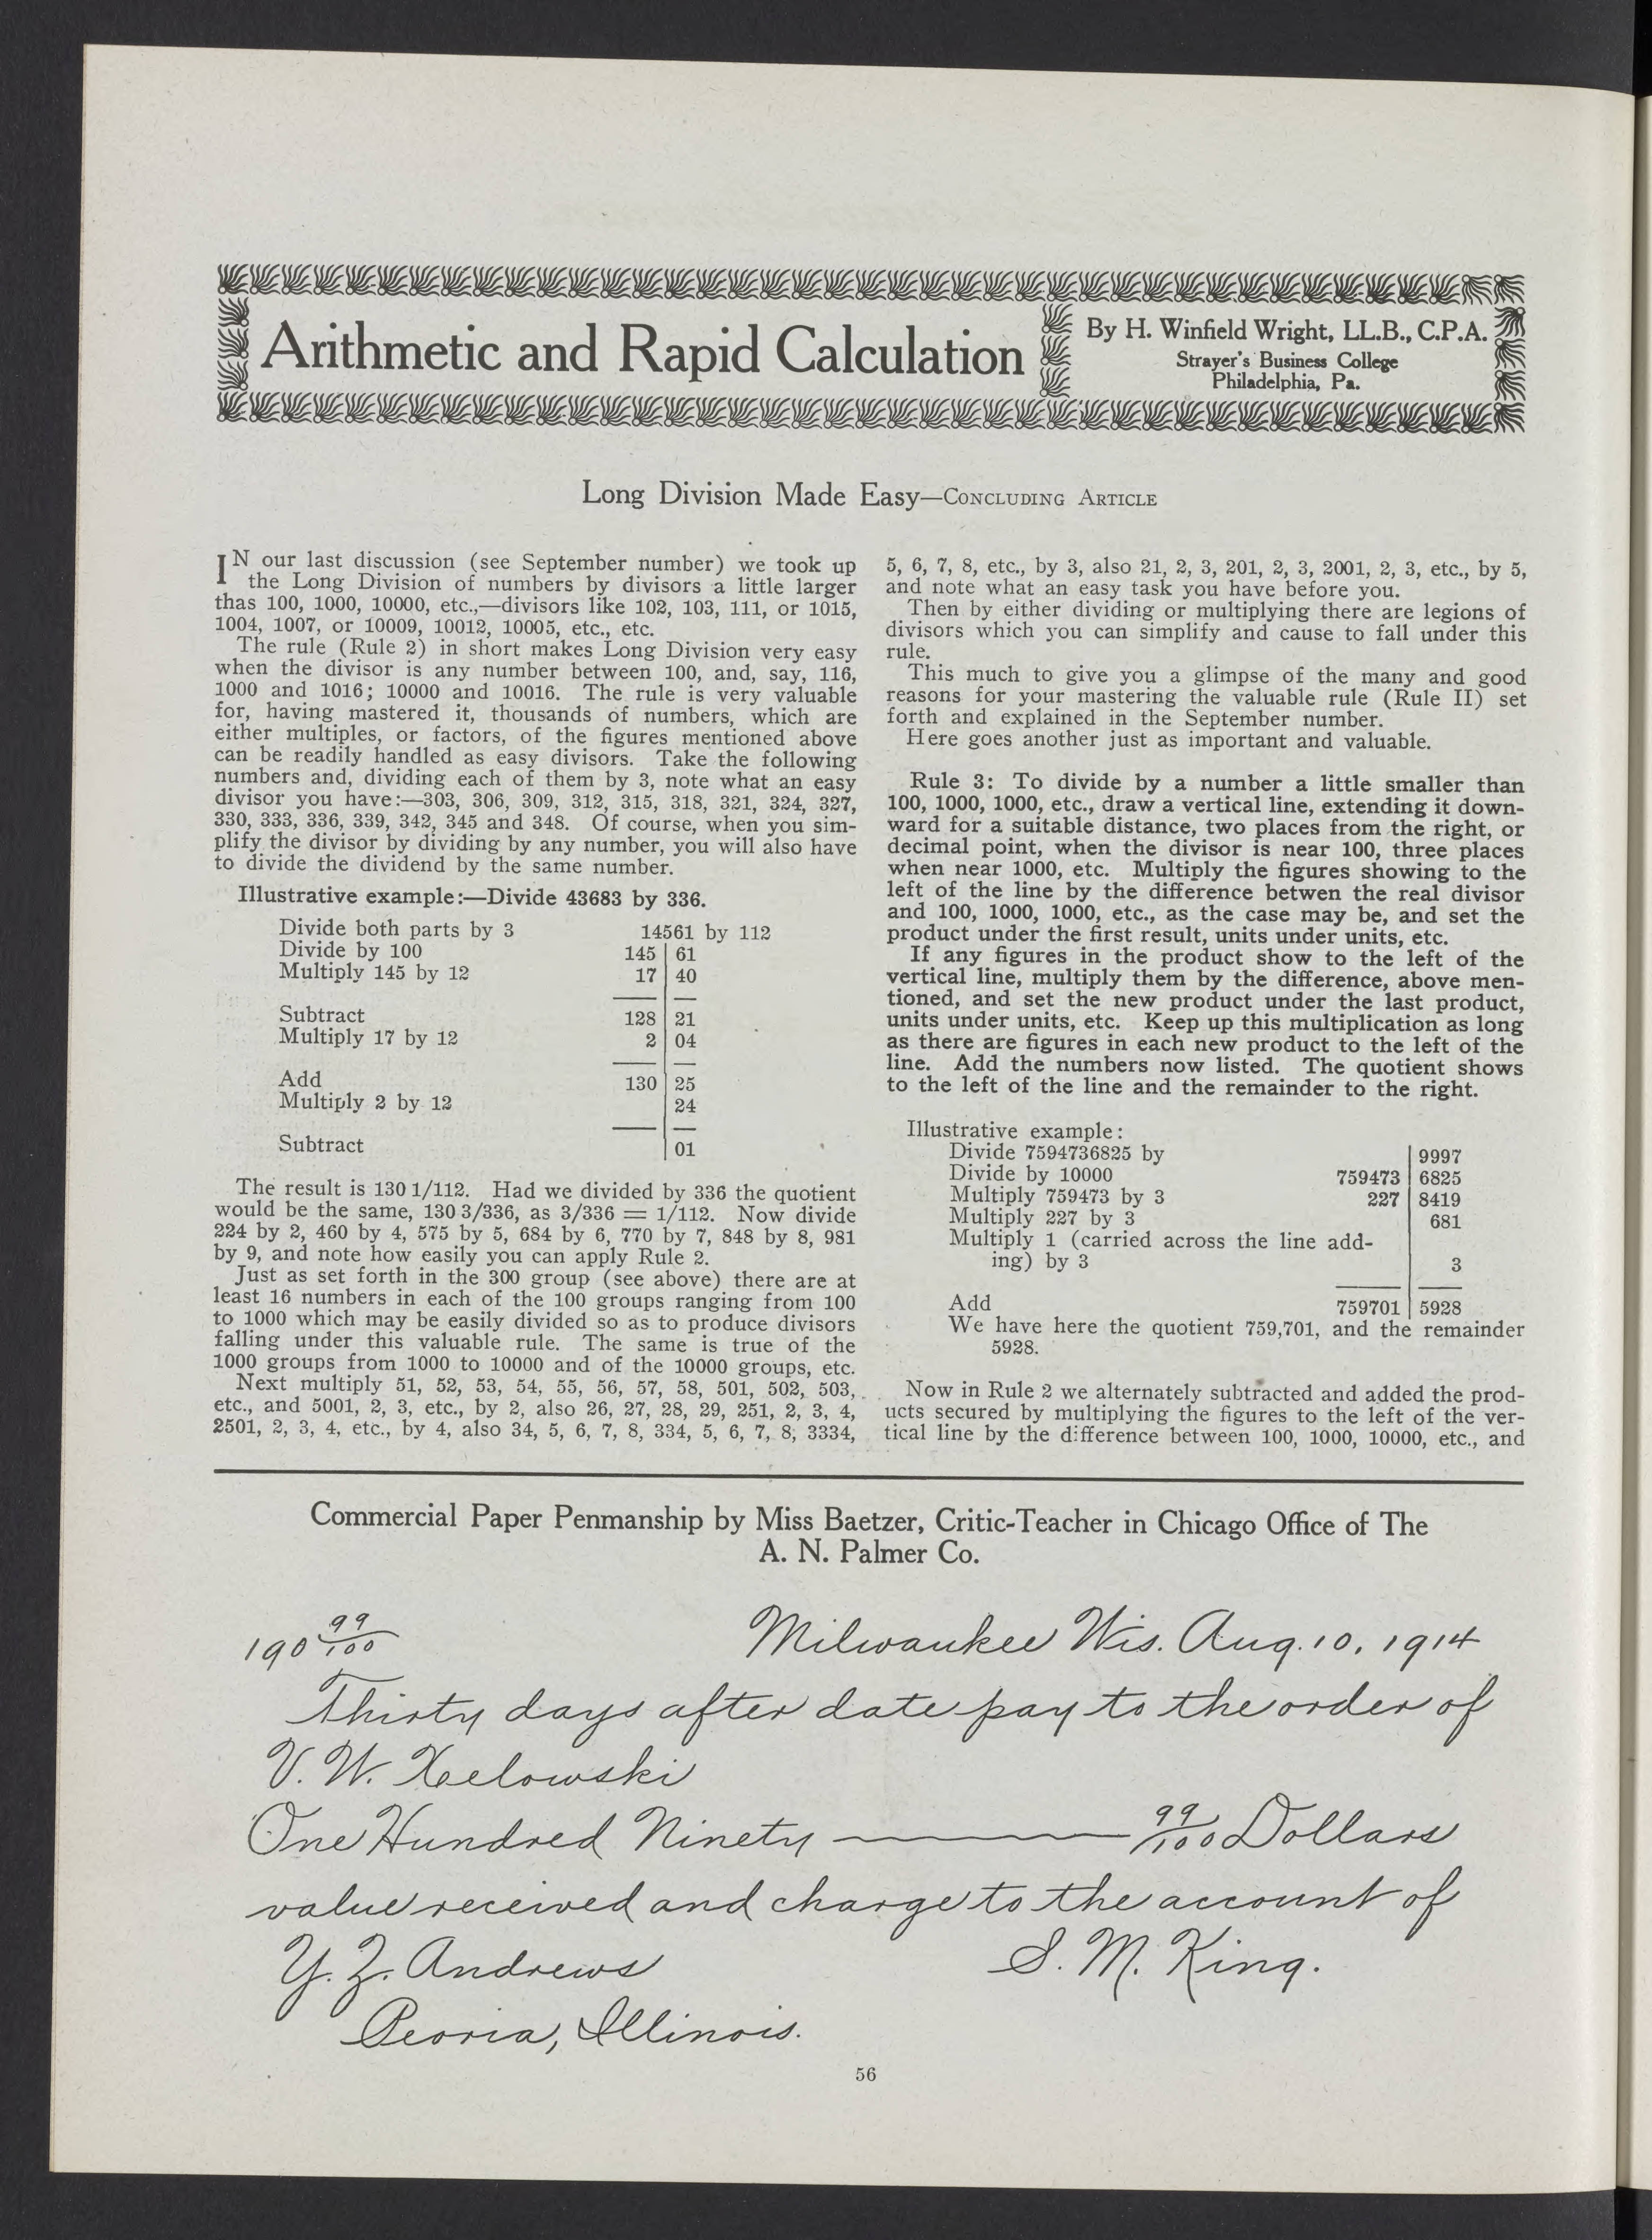 Arithmetic and Rapid Calculation
By H. Winfield Wright, LL.B., C.P.A.
Strayer's Business College
Philadelphia, Pa.
Long Division Made Easy—Concluding Article
IN our last discussion (see September number) we took up
the Long Division of numbers by divisors a little larger
thas 100, 1000, 10000, etc.,—divisors like 102, 103, 111, or 1015,
1004, 1007, or 10009, 10012, 10005, etc., etc.
The rule (Rule 2) in short makes Long Division very easy
when the divisor is any number between 100, and, say, 116,
1000 and 1016; 10000 and 10016. The rule is very valuable
for, having mastered it, thousands of numbers, which are
either multiples, or factors, of the figures mentioned above
can be readily handled as easy divisors. Take the following
numbers and, dividing each of them by 3, note what an easy
divisor you have:—303, 306, 309, 312, 315, 318, 321, 324, 327,
330, 333, 336, 339, 342, 345 and 348. Of course, when you sim-
plify the divisor by dividing by any number, you will also have
to divide the dividend by the same number.
Illustrative example:—Divide 43683 by 336.
Divide both parts by 3 14561 by 112
Divide by 100 145 | 61
Multiply 145 by 12 17 | 40
Subtract 128 | 21
Multiply 17 by 12 2 | 04
Add 130 | 25
Multiply 2 by 12 | 24
Subtract | 01
The result is 130 1/112. Had we divided by 336 the quotient
would be the same, 130 3/336, as 3/336 = 1/112. Now divide
224 by 2, 460 by 4, 575 by 5, 684 by 6, 770 by 7, 848 by 8, 981
by 9, and note how easily you can apply Rule 2.
Just as set forth in the 300 group (see above) there are at
least 16 numbers in each of the 100 groups ranging from 100
to 1000 which may be easily divided so as to produce divisors
falling under this valuable rule. The same is true of the
1000 groups from 1000 to 10000 and of the 10000 groups, etc.
Next multiply 51, 52, 53, 54, 55, 56, 57, 58, 501, 502, 503,
etc., and 5001, 2, 3, etc., by 2, also 26, 27, 28, 29, 251, 2, 3, 4,
2501, 2, 3, 4, etc., by 4, also 34, 5, 6, 7, 8, 334, 5, 6, 7, 8, 3334,
5, 6, 7, 8, etc., by 3, also 21, 2, 3, 201, 2, 3, 2001, 2, 3, etc., by 5,
and note what an easy task you have before you.
Then by either dividing or multiplying there are legions of
divisors which you can simplify and cause to fall under this
rule.
This much to give you a glimpse of the many and good
reasons for your mastering the valuable rule (Rule II) set
forth and explained in the September number.
Here goes another just as important and valuable.
Rule 3: To divide by a number a little smaller than
100, 1000, 1000, etc., draw a vertical line, extending it down-
ward for a suitable distance, two places from the right, or
decimal point, when the divisor is near 100, three places
when near 1000, etc. Multiply the figures showing to the
left of the line by the difference betwen the real divisor
and 100, 1000, 1000, etc., as the case may be, and set the
product under the first result, units under units, etc.
If any figures in the product show to the left of the
vertical line, multiply them by the difference, above men-
tioned, and set the new product under the last product,
units under units, etc. Keep up this multiplication as long
as there are figures in each new product to the left of the
line. Add the numbers now listed. The quotient shows
to the left of the line and the remainder to the right.
Illustrative example:
Divide 7594736825 by | 9997
Divide by 10000 759473 | 6825
Multiply 759473 by 3 227 | 8419
Multiply 227 by 3 | 681
Multiply 1 (carried across the line add-
ing) by 3 | 3
Add 759701 | 5928
We have here the quotient 759,701, and the remainder
5928.
Now in Rule 2 we alternately subtracted and added the prod-
ucts secured by multiplying the figures to the left of the ver-
tical line by the difference between 100, 1000, 10000, etc., and
Commercial Paper Penmanship by Miss Baetzer, Critic-Teacher in Chicago Office of The
A. N. Palmer Co.
190 99/100 Milwaukee Wis. Aug. 10, 1914
Thirty days after date pay to the order of
V. W. Xelowski
One Hundred Ninety 99/100 Dollars
value received and charge to the account of
Y. Z. Andrews S. M. King.
Peoria, Illinois.
56